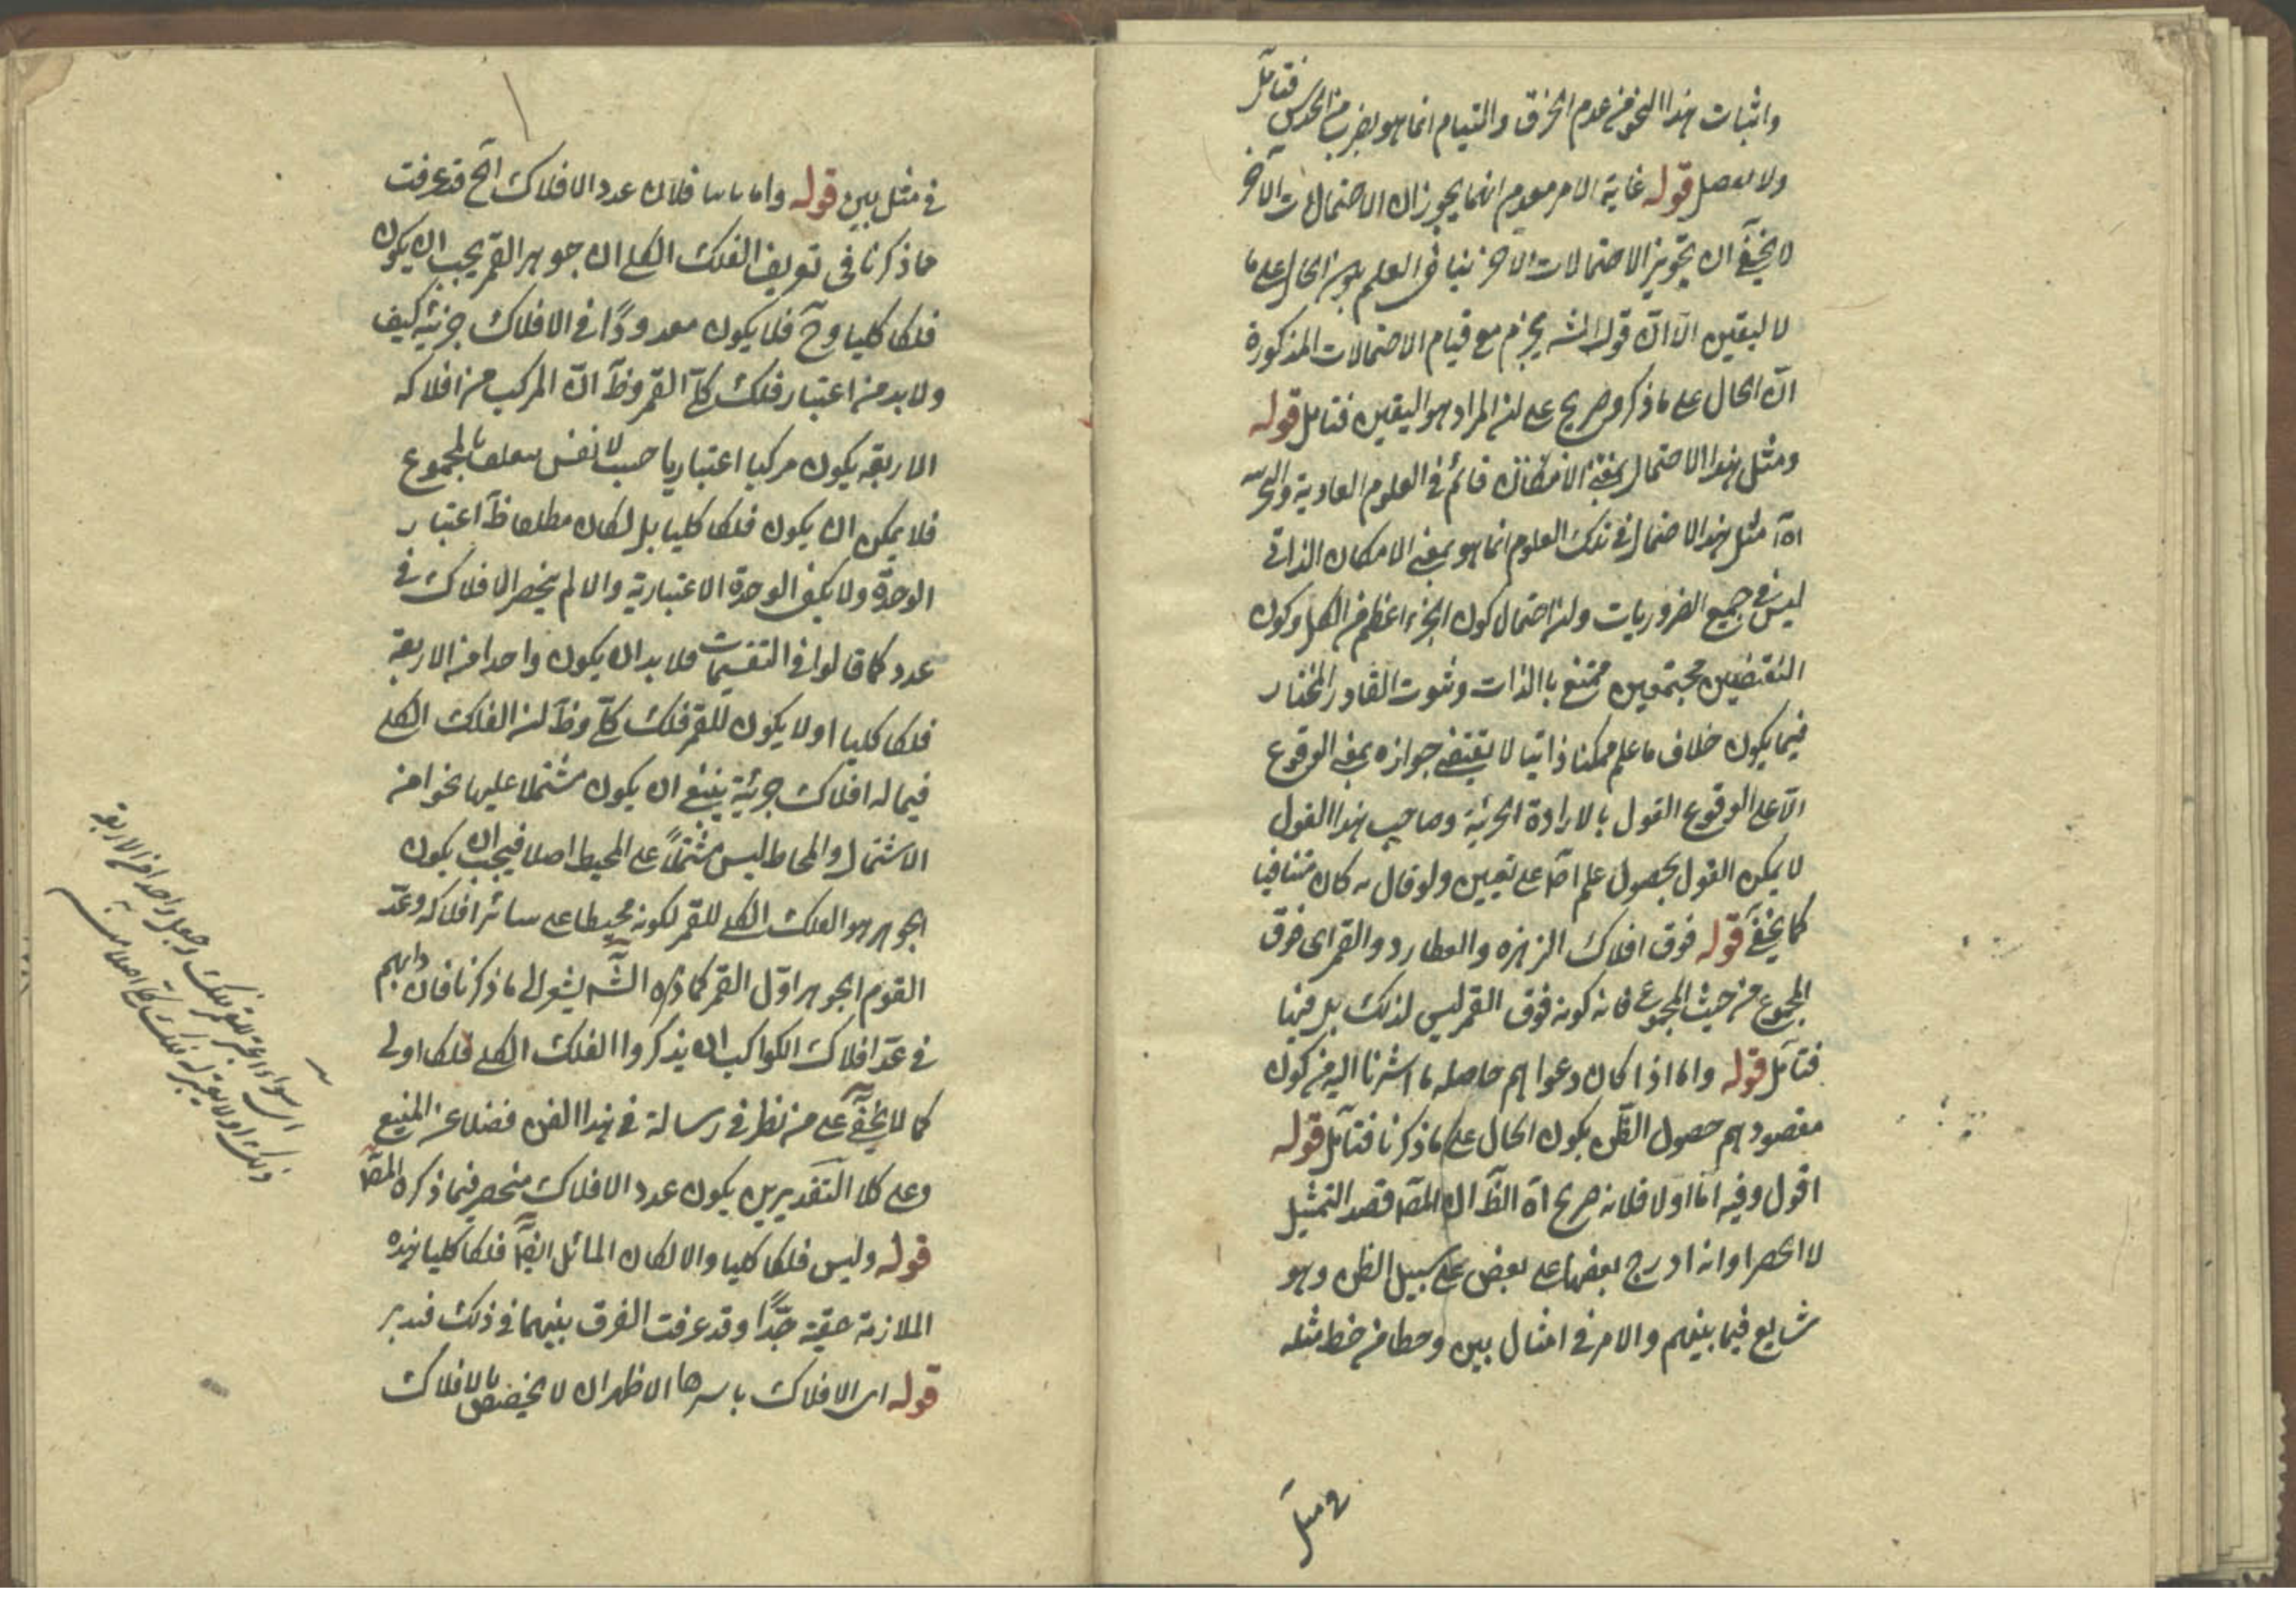 واثبات هذا النحو من عدم الخرق والتيام انما هو بضرب من الحدس فتامل
ولا قوله غاية الامر معهم انما يجوز ان الاحتمالات الآخر
لا يخفى ان تجويز الاحتمالات الاخر ينافى العلم بان الحال على ما
لا ليقين الا ان قول الش يجزم مع قيام الاحتمالات المذكورة
ان الحال على ما ذكر صريح على ان المراد هو اليقين فتامل قوله
ومثل هذا الاحتمال بمعنى الامكان قائم فى العلوم العادية
مثل هذا الاحتمال فى تلك العلوم انما هو بمعنى الامكان الذاتى
ليس فى جميع الضروريات وان احتمال كون الجزء اعظم من الكل وكون
النقيضين مجتمعين ممتنع بالذات وثبوت القادر المختار
فيما يكون خلاف ما علم ممكنا ذاتيا لا يقتضى جوازه بمعنى الوقوع
الا على الوقوع القول بالارادة الجزئية وصاحب هذا القول
لا يمكن القول بحصول علم اص على تعيين ولو قال به كان متنافيا
كما يخفى قوله فوق افلاك الزهرة والعطارد والقمر اى فوق
المجموع من حيث المجموع فانه كونه فوق القمر ليس لذلك بل فيها
فتامل قوله واما اذا كان دعواهم حاصله ما اشرنا اليه من كون
مقصودهم حصول الظن يكون الحال على ما ذكرنا فتامل قوله
اقول وفيه اما اولا فلانه صريح اه الظ ان المص قصد التمثيل
لا الحصر او انه ادرج بعضها على بعض على سبيل الظن وهو
شايع فيما بينهم والامر فى امثال بين وحطا من خط مثله
فى مثل
فى مثل بين قوله واما ثانيا فلان عدد الافلاك الخ قد عرفت
مما ذكرنا فى تعريف الفلك الكلى ان جوهر القمر يجب ان يكون
فلكا كليا وح فلا يكون معدودًا فى الافلاك جزئية كيف
ولا بد من اعتبار فلك كلى القمر وظ ان المركب من افلاكه
الاربعة يكون مركبا اعتباريا حيث لا نفس بالمجموع
فلا يمكن ان يكون فلكا كليا بل لكان مطلقا ظ اعتبار
الوحدة ولا يكفى الوحدة الاعتبارية والا لم ينحصر الافلاك فى
عدد كما قالوا فى التقسيمات فلا بد ان يكون واحدا من الاربعة
فلكا كليا او لا يكون للقمر فلك كلى وظ ان الفلك الكلى
فيما له افلاك جزئية ينبغى ان يكون مشتملا عليها نحوا من
الاشتمال والمحاط ليس مشتملاً على المحيط اصلا فيجب ان يكون
الجوهر هو الفلك الكلى للقمر لكونه محيطا على سائر افلاكه وعدّ
القوم الجوهر اوّل القمر كما ذكره الش يشعر الى ما ذكرنا فان دابهم
فى عدّ افلاك الكواكب ان يذكروا الفلك الكلى فلكا اولى
كما لا يخفى على من نظر فى رسالة فى هذا الفن فضلا عن
وعلى كلا التقديرين يكون عدد الافلاك منحصر فيما ذكره المص
قوله وليس فلكا كليا والا لكان المائل ايض فلكا كليا هذه
الملازمة جدًّا وقد عرفت الفرق بينهما فى ذلك فتدبر
قوله اى الافلاك باسرها الاظهر ان لا يختص بالافلاك
اى سواء اعتبر للقمر فلك وجعل واحدا من الاربعة
ذلك اولا يعتبر له فلك كلى اصلا